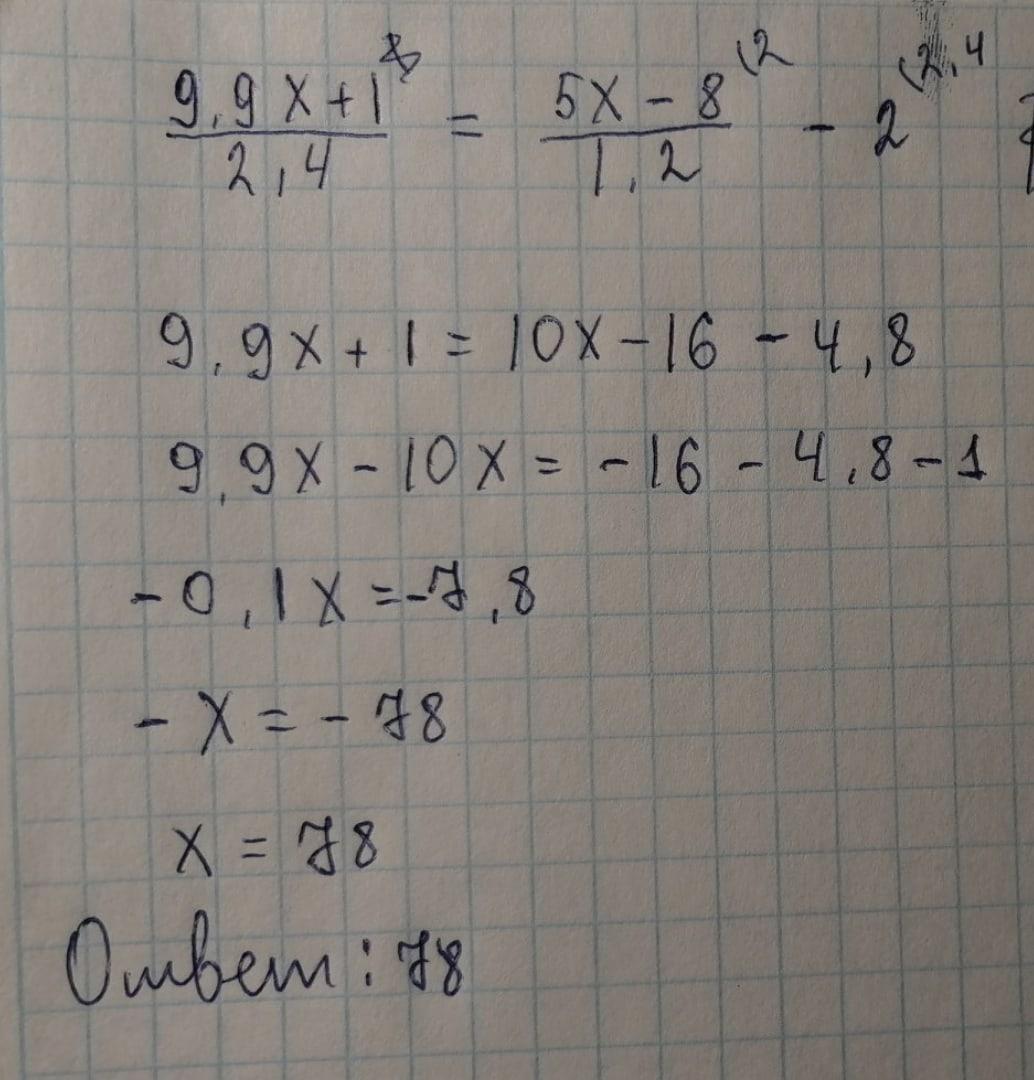 9,9x+1 / 2,4 = 5x-8 (2 / 1,2 - 2 (2,4
9,9x+1=10x-16-4,8
9,9x-10x=-16-4,8-1
-0,1x=-7,8
-x=-78
x=78
Ответ: 78